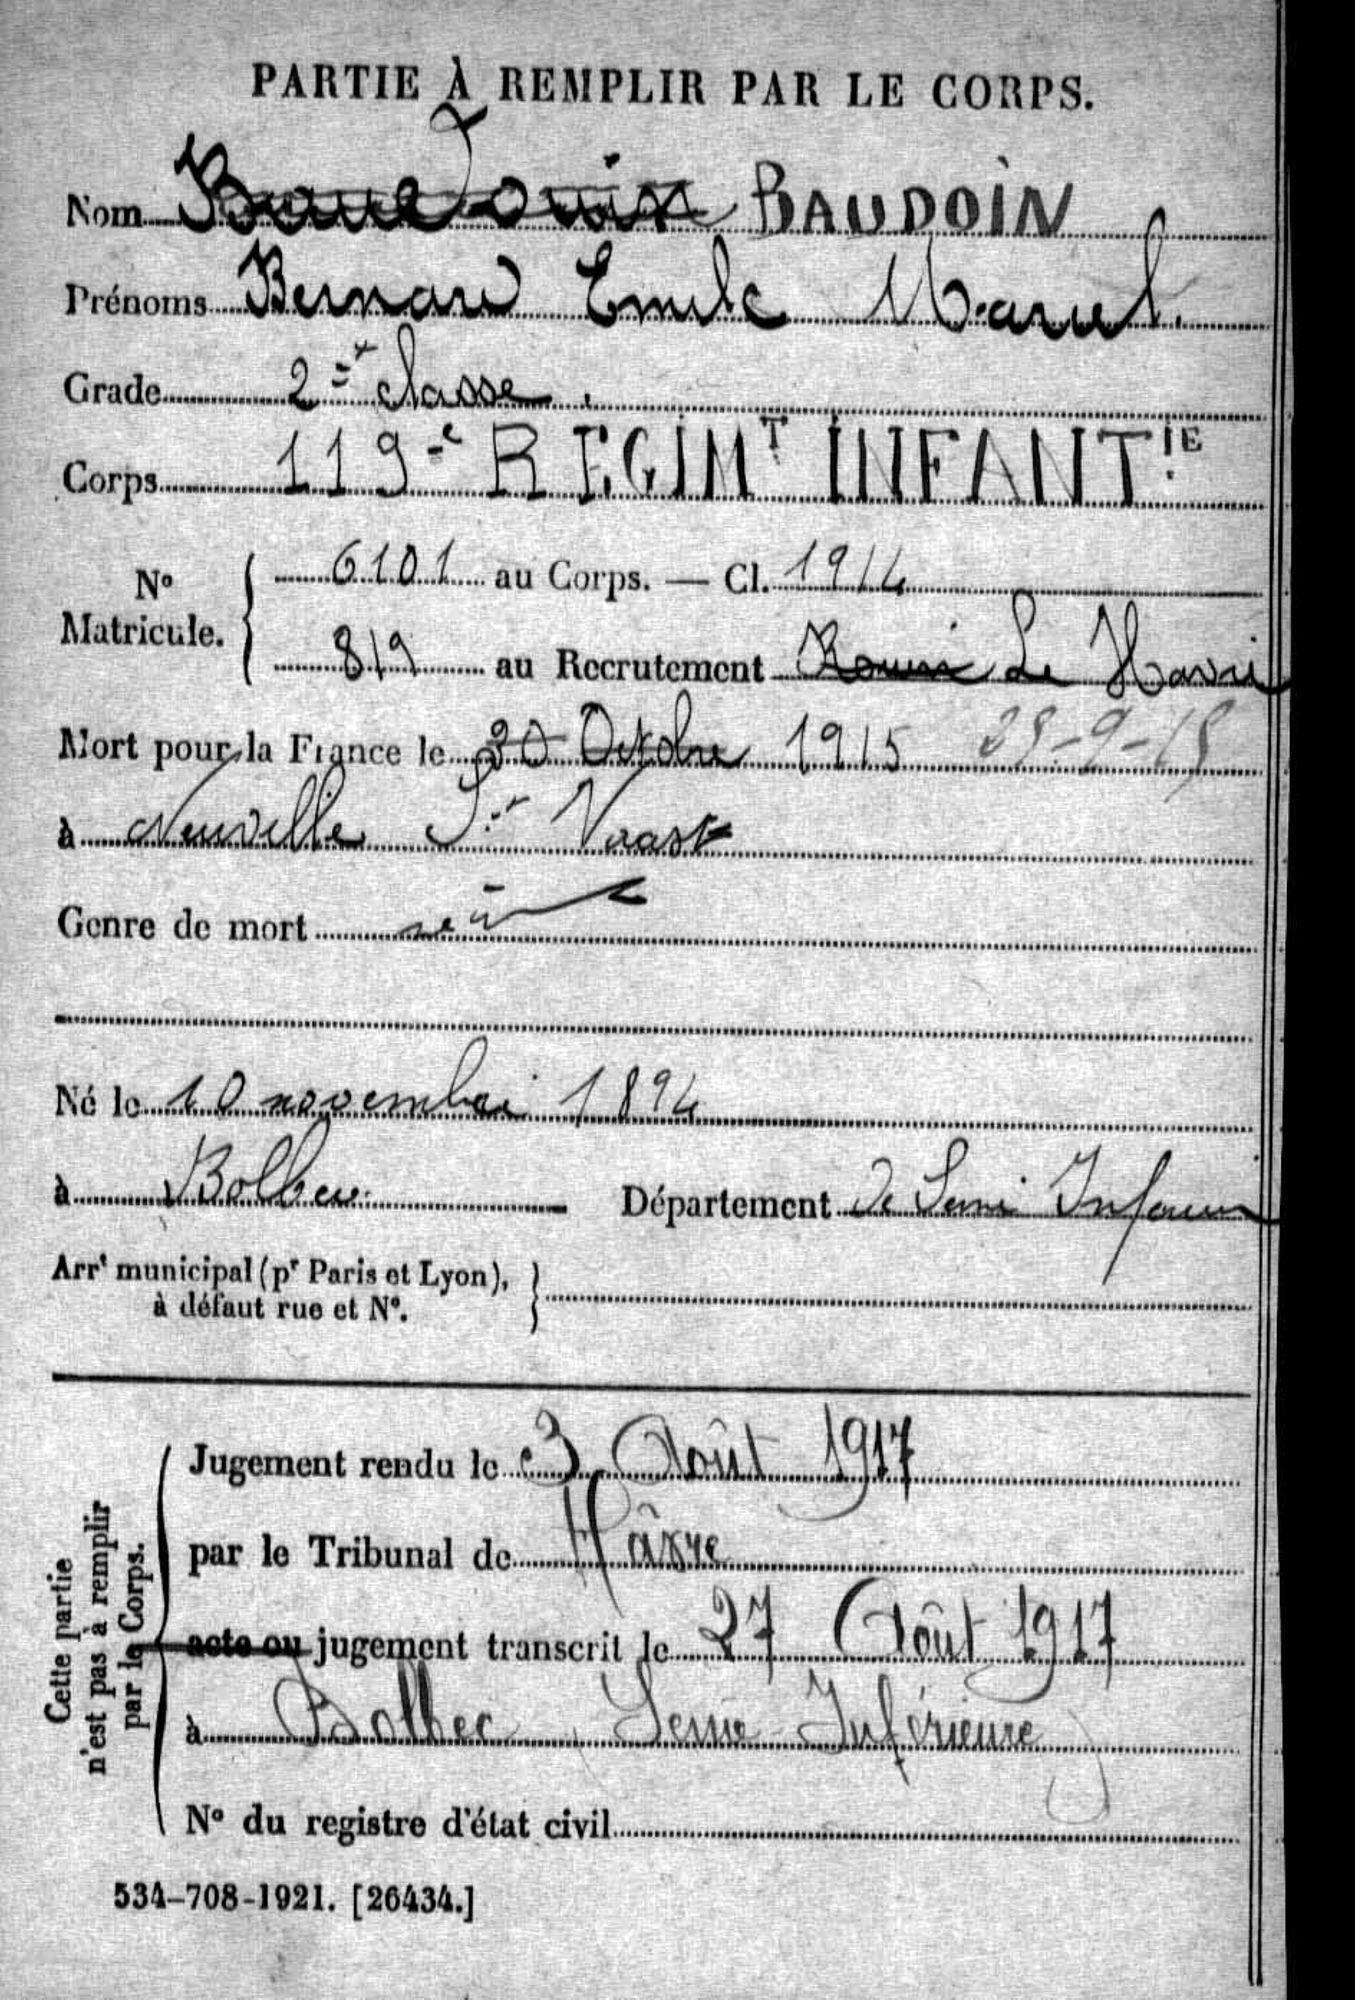 PARTIE À REMPLIR PAR LE CORPS.
Nom Baudouin BAUDOIN
Prénoms Bernard Emile Marcel.
Grade 2e classe.
Corps 119e REGIMT INFANTIE
No Matricule. 6101 au Corps. — Cl. 1914
819 au Recrutement Rouen Le Havre
Mort pour la France le 30 Octobre 1915 25-9-15
à Neuville St Vaast
Genre de mort
Né le 10 novembre 1894
à Bolbec Département de Seine Inférieure
Arrt municipal (pr Paris et Lyon),
à défaut rue et No.
Cette partie n'est pas à remplir par le Corps.
Jugement rendu le 3 Août 1917
par le Tribunal de Hâvre
acte ou jugement transcrit le 27 Août 1917
à Bolbec Seine Inférieure
No du registre d'état civil
534-708-1921. [26434.]